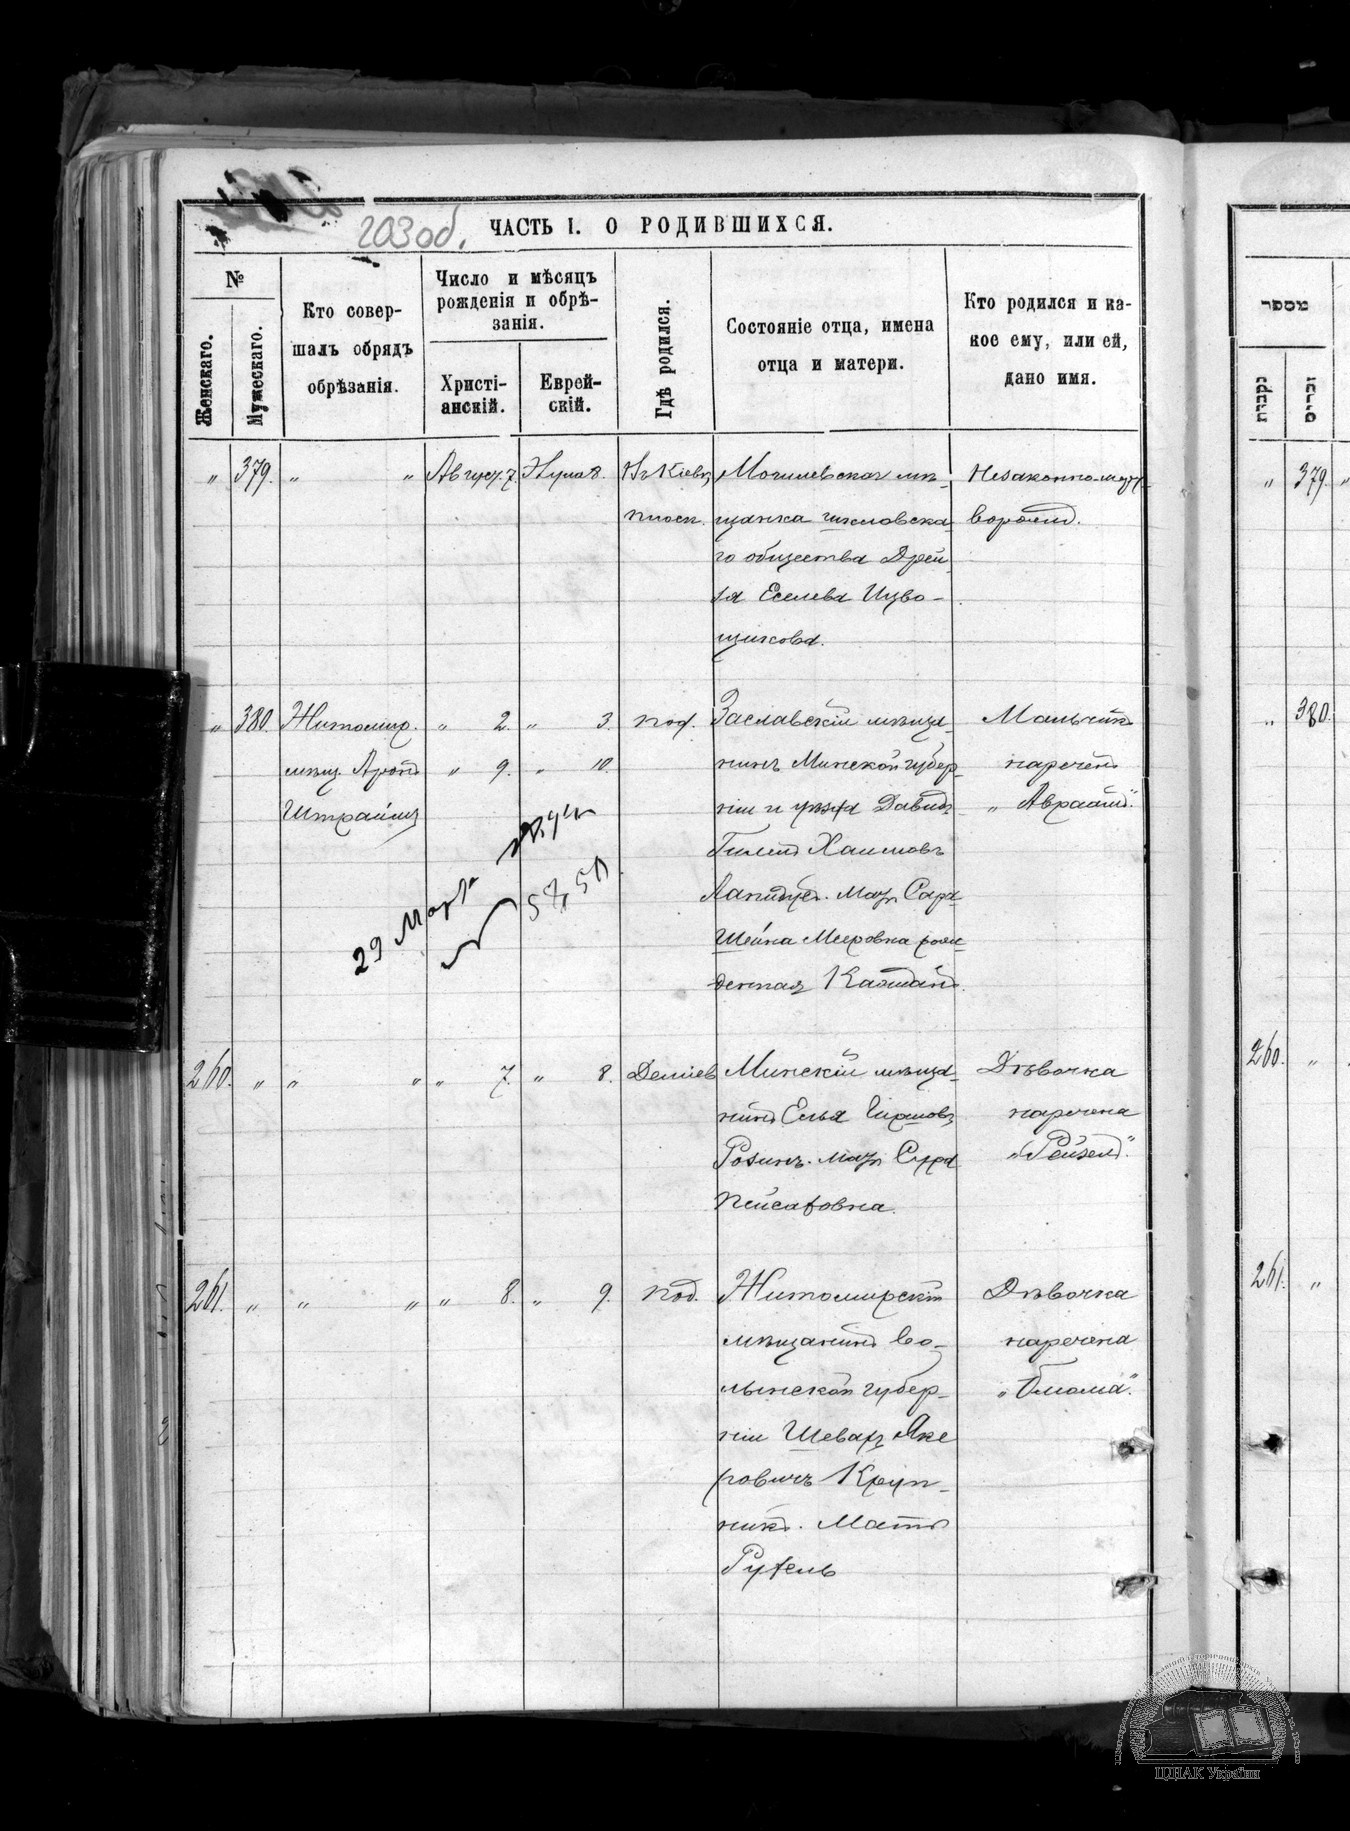 203 об.
ЧАСТЬ I. О РОДИВШИХСЯ.
№
Женскаго.
Мужескаго.
Кто совер-
шалъ обрядъ
обрѣзанія.
Число и мѣсяцъ
рожденія и обрѣ-
занія.
Христі-
анскій.
Еврей-
скій.
Гдѣ родился.
Состояніе отца, имена
отца и матери.
Кто родился и ка-
кое ему, или ей,
дано имя.
" 379. " " Август. 7. 8. Могилевская мѣ-
щанка шкловска-
го общества
Еселева Изво-
щикова.
Незаконно
" 380. Житомир.
мѣщ. Аронъ
" 2. " 3.
" 9. " 10.
Заславскій мѣща-
нинъ Минской губер-
ніи и уѣзда Давидъ
Хаимовъ
Лапидусъ. Мать Сара
Шейна Мееровна рож-
денная
Мальчикъ
нареченъ
„Авраамъ“.
29 Марта
260. " " " " 7. " 8. Деміев.
Минскій мѣща-
нинъ Елья
Розинъ. Мать Сура
Пейсаховна.
Дѣвочка
наречена
„Рейзель“.
261. " " " " 8. " 9. Под.
Житомирскій
мѣщанинъ Во-
лынской губер-
ніи
Круп-
никъ. Мать
Рухель
Дѣвочка
наречена
מספר
נקבות
זכרים
" 379. "
" 380.
260. "
261. "
ЦДІАК України